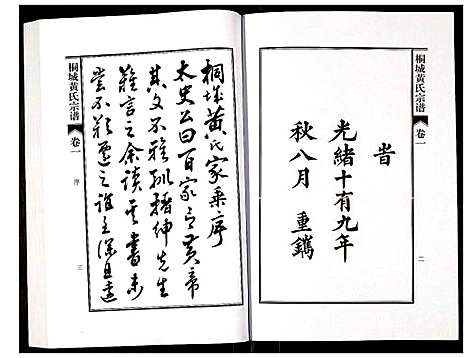 桐城黄氏宗谱
卷一
二
旹
光緒十有九年
秋八月 重鐫
桐城黃氏家乘序
太史公曰百家言黃帝
其文不雅馴搢紳先生
難言之余讀其書未
嘗不歎遷之深且遠
桐城黄氏宗谱
卷一
序
三